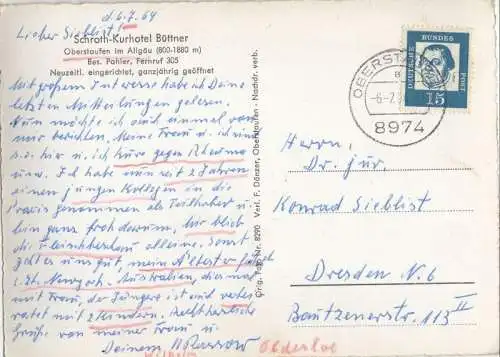 d. 6.7.64
Lieber Sieblist!
Schroth-Kurhotel Büttner
Oberstaufen im Allgäu (800-1880 m)
Bes. Pahler, Fernruf 305
Neuzeitl. eingerichtet, ganzjährig geöffnet
Mit großem Interesse habe ich Deine
letzten Mitteilungen gelesen.
Nun möchte ich auch einmal von
mir berichten. Meine Frau u. ich sind
z. Z. hier u. ich kure gegen Rheuma
usw. Ich habe nun seit 2 Jahren
einen jungen Kollegen in die
Praxis genommen als Teilhaber u.
bin ganz froh darum, mir blieb
die Fleischbeschau alleine. Sonst
geht es uns gut, mein Ältester
z. Zt. Australien, diesmal
mit Frau, der Jüngere ist auch verhei
ratet mit 2 Kindern. Recht herzliche
Grüße von meiner Frau u.
Deinem
Wilhelm
Oldesloe
Orig. Foto Nr. 8295 Verl. F. Dörzer, Oberstaufen - Nachdr. verb.
DEUTSCHE BUNDES POST
15
OBERST
8974
Herrn
Dr. jur.
Konrad Sieblist
Dresden N. 6
Bautzenerstr. 113 II